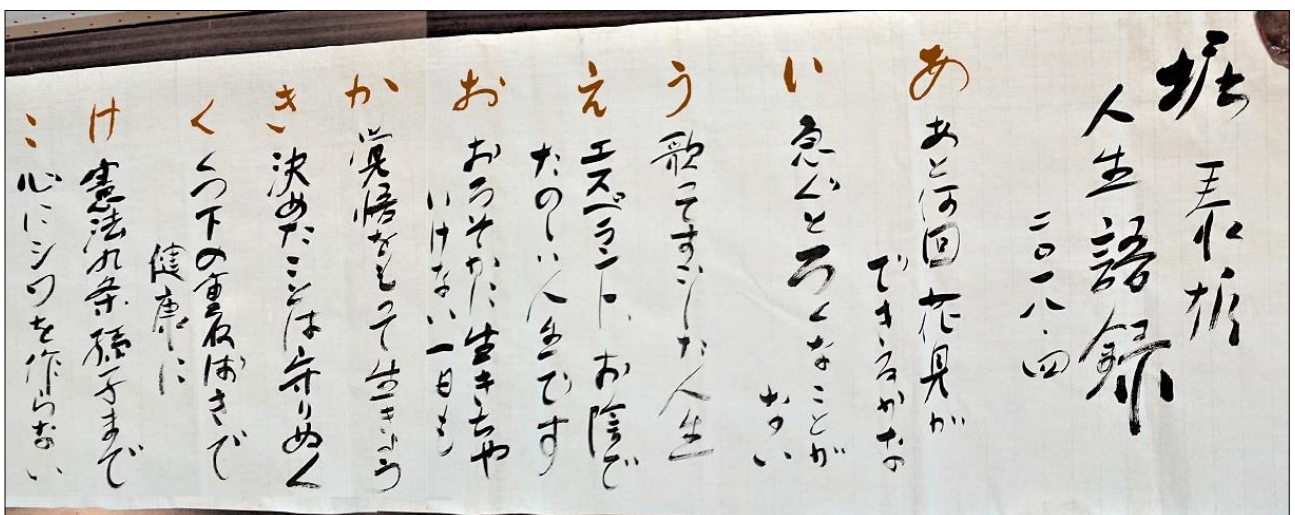 堀
人生語録
二〇一八・四
あ あと何回花見が
できるかな
い 急ぐとろくなことが
ない
う 歌ってすごした人生
え エスペラント、お陰で
たのしい人生です
お おろそかに生きちゃ
いけない一日も
か 覚悟をもって生きよう
き 決めたことは守りぬく
く くつ下の重ねばきで
健康に
け 憲法九条孫子まで
こ 心にシワを作らない